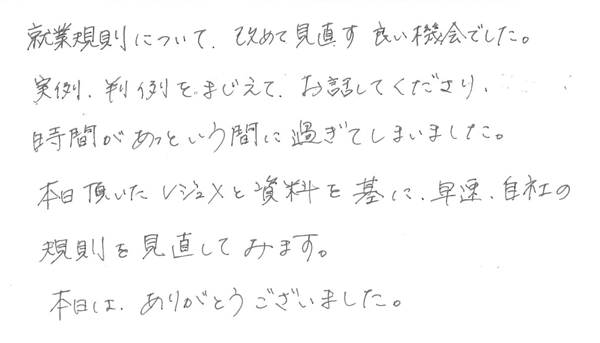 就業規則について、改めて見直す良い機会でした。
実例、判例をまじえて、お話してくださり、
時間があっという間に過ぎてしまいました。
本日頂いたレジュメと資料を基に、早速、自社の
規則を見直してみます。
本日は、ありがとうございました。